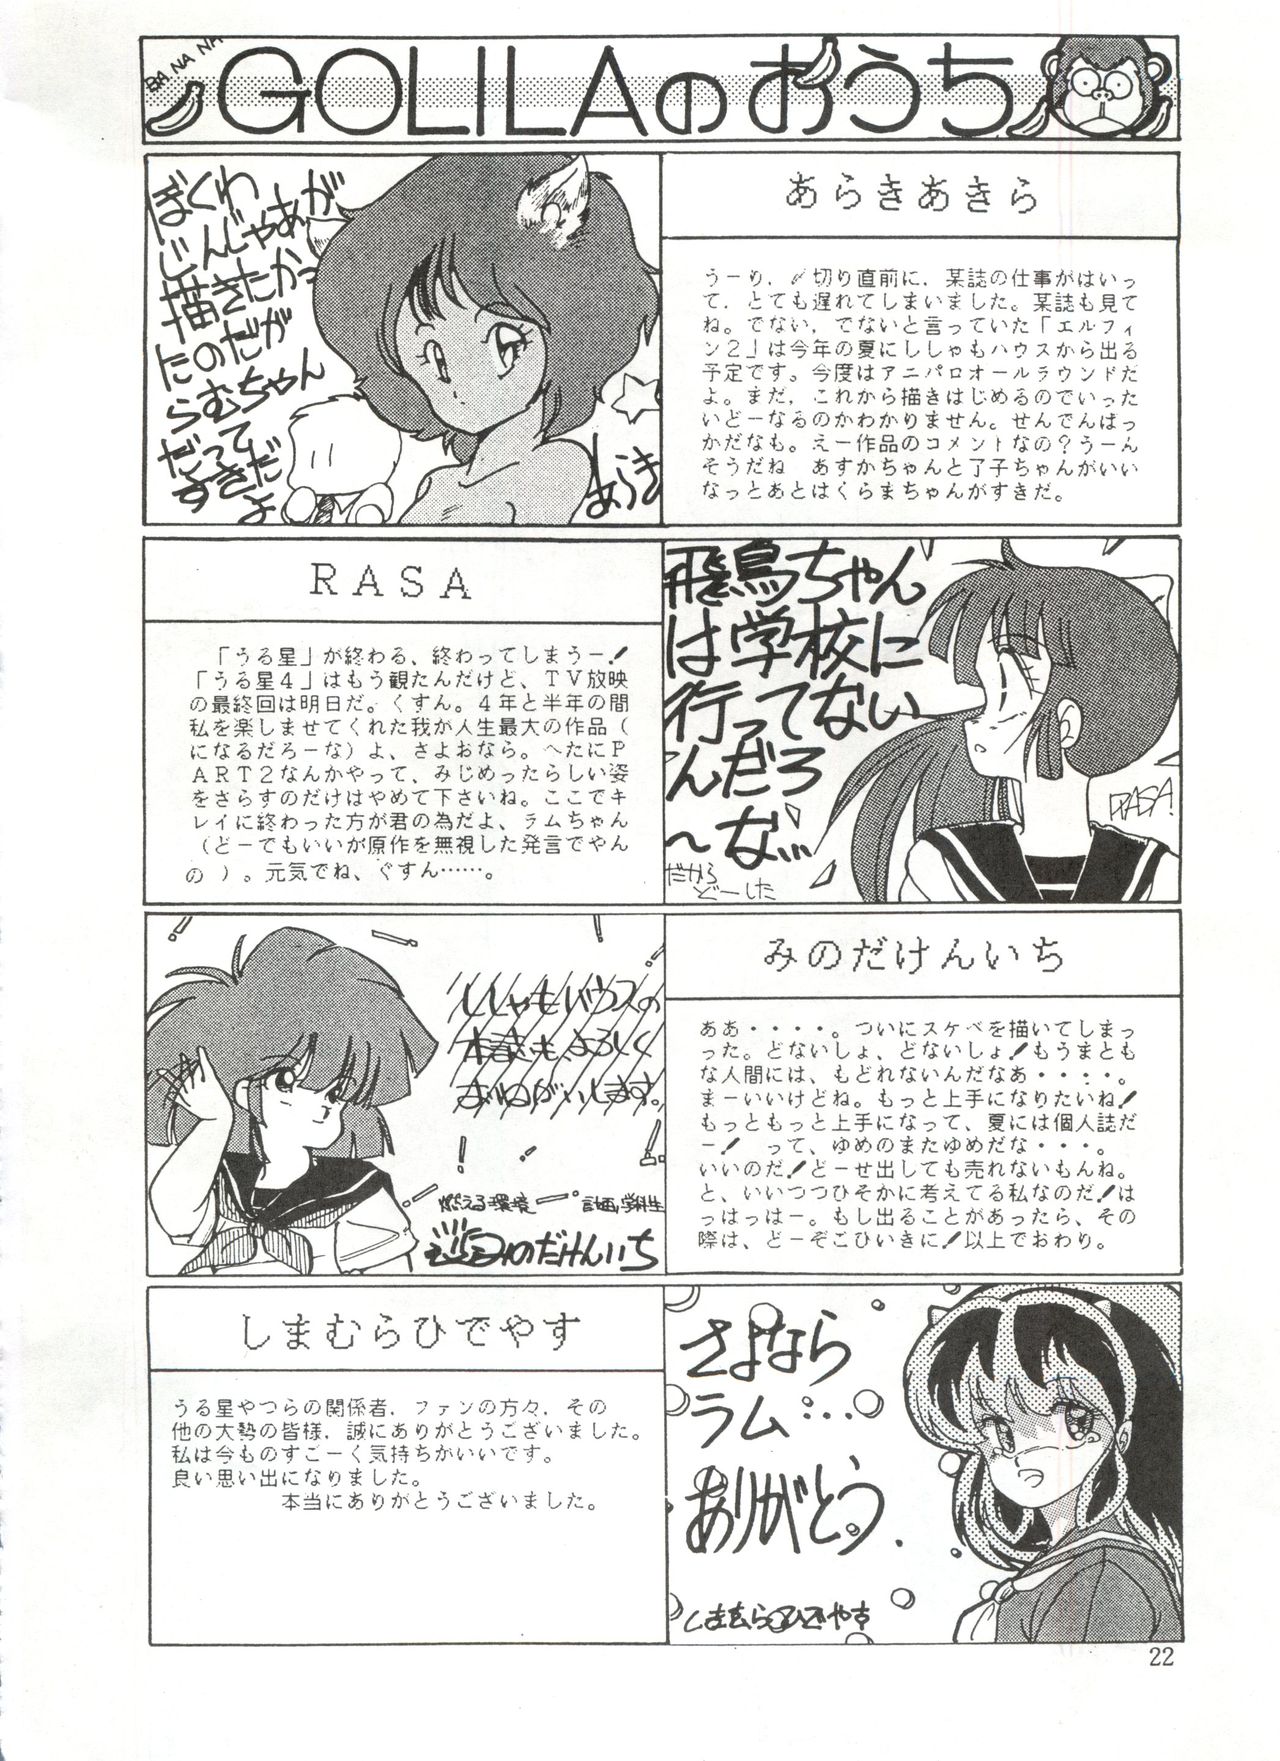 BA NA NA
GOLILAのおうち
ぼくわ
じんじゃあが
描きたかっ
たのだが
らむちゃん
だって
すきだ
よ
あらき
あらきあきら
うーり、〆切り直前に、某誌の仕事がはいっ
て、とても遅れてしまいました。某誌も見て
ね。でない、でないと言っていた「エルフィ
ン2」は今年の夏にししゃもハウスから出る
予定です。今度はアニパロオールラウンドだ
よ。まだ、これから描きはじめるのでいった
いどーなるのかわかりません。せんでんばっ
かだなも。えー作品のコメントなの?うーん
そうだね　あすかちゃんと了子ちゃんがいい
なっとあとはくらまちゃんがすきだ。
RASA
「うる星」が終わる、終わってしまうー!
「うる星4」はもう観たんだけど、TV放映
の最終回は明日だ。くすん。4年と半年の間
私を楽しませてくれた我が人生最大の作品(
になるだろーな)よ、さよおなら。へたにP
ART2なんかやって、みじめったらしい姿
をさらすのだけはやめて下さいね。ここでキ
レイに終わった方が君の為だよ、ラムちゃん
(どーでもいいが原作を無視した発言でやん
の)。元気でね、ぐすん……。
飛鳥ちゃん
は学校に
行ってない
んだろ
～な…
だから
どーした
RASA!
みのだけんいち
ああ・・・・。ついにスケベを描いてしまっ
った。どないしょ、どないしょ!もうまとも
な人間には、もどれないんだなあ・・・・。
まーいいけどね。もっと上手になりたいね!
もっともっと上手になって、夏には個人誌だ
ー!　って、ゆめのまたゆめだな・・・。
いいのだ!どーせ出しても売れないもんね。
と、いいつつひそかに考えてる私なのだ!は
っはっはー。もし出ることがあったら、その
際は、どーぞこひいきに!以上でおわり。
ししゃもハウスの
本誌もよろしく
おねがいします。
燃える環境ー計画学科生
みのだけんいち
しまむらひでやす
うる星やつらの関係者、ファンの方々、その
他の大勢の皆様、誠にありがとうございました。
私は今ものすごーく気持ちがいいです。
良い思い出になりました。
本当にありがとうございました。
さよなら
ラム…
ありがとう.
しまむらひでやす
22